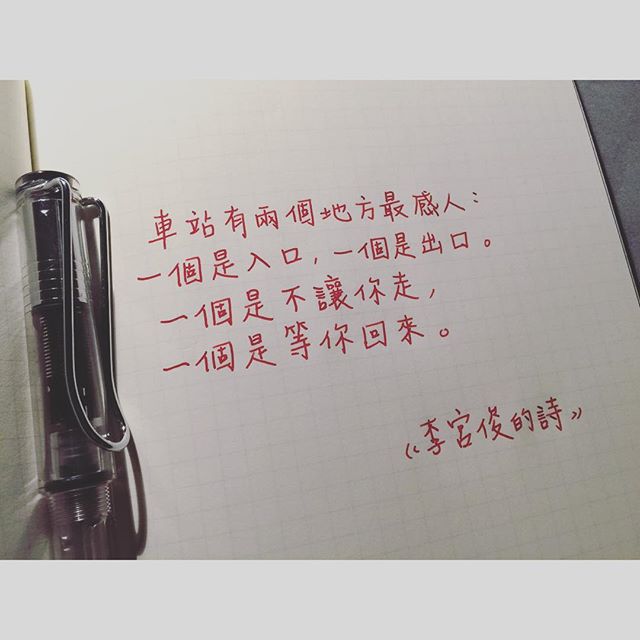 車站有兩個地方最感人：
一個是入口，一個是出口。
一個是不讓你走，
一個是等你回來。
《李宮俊的詩》